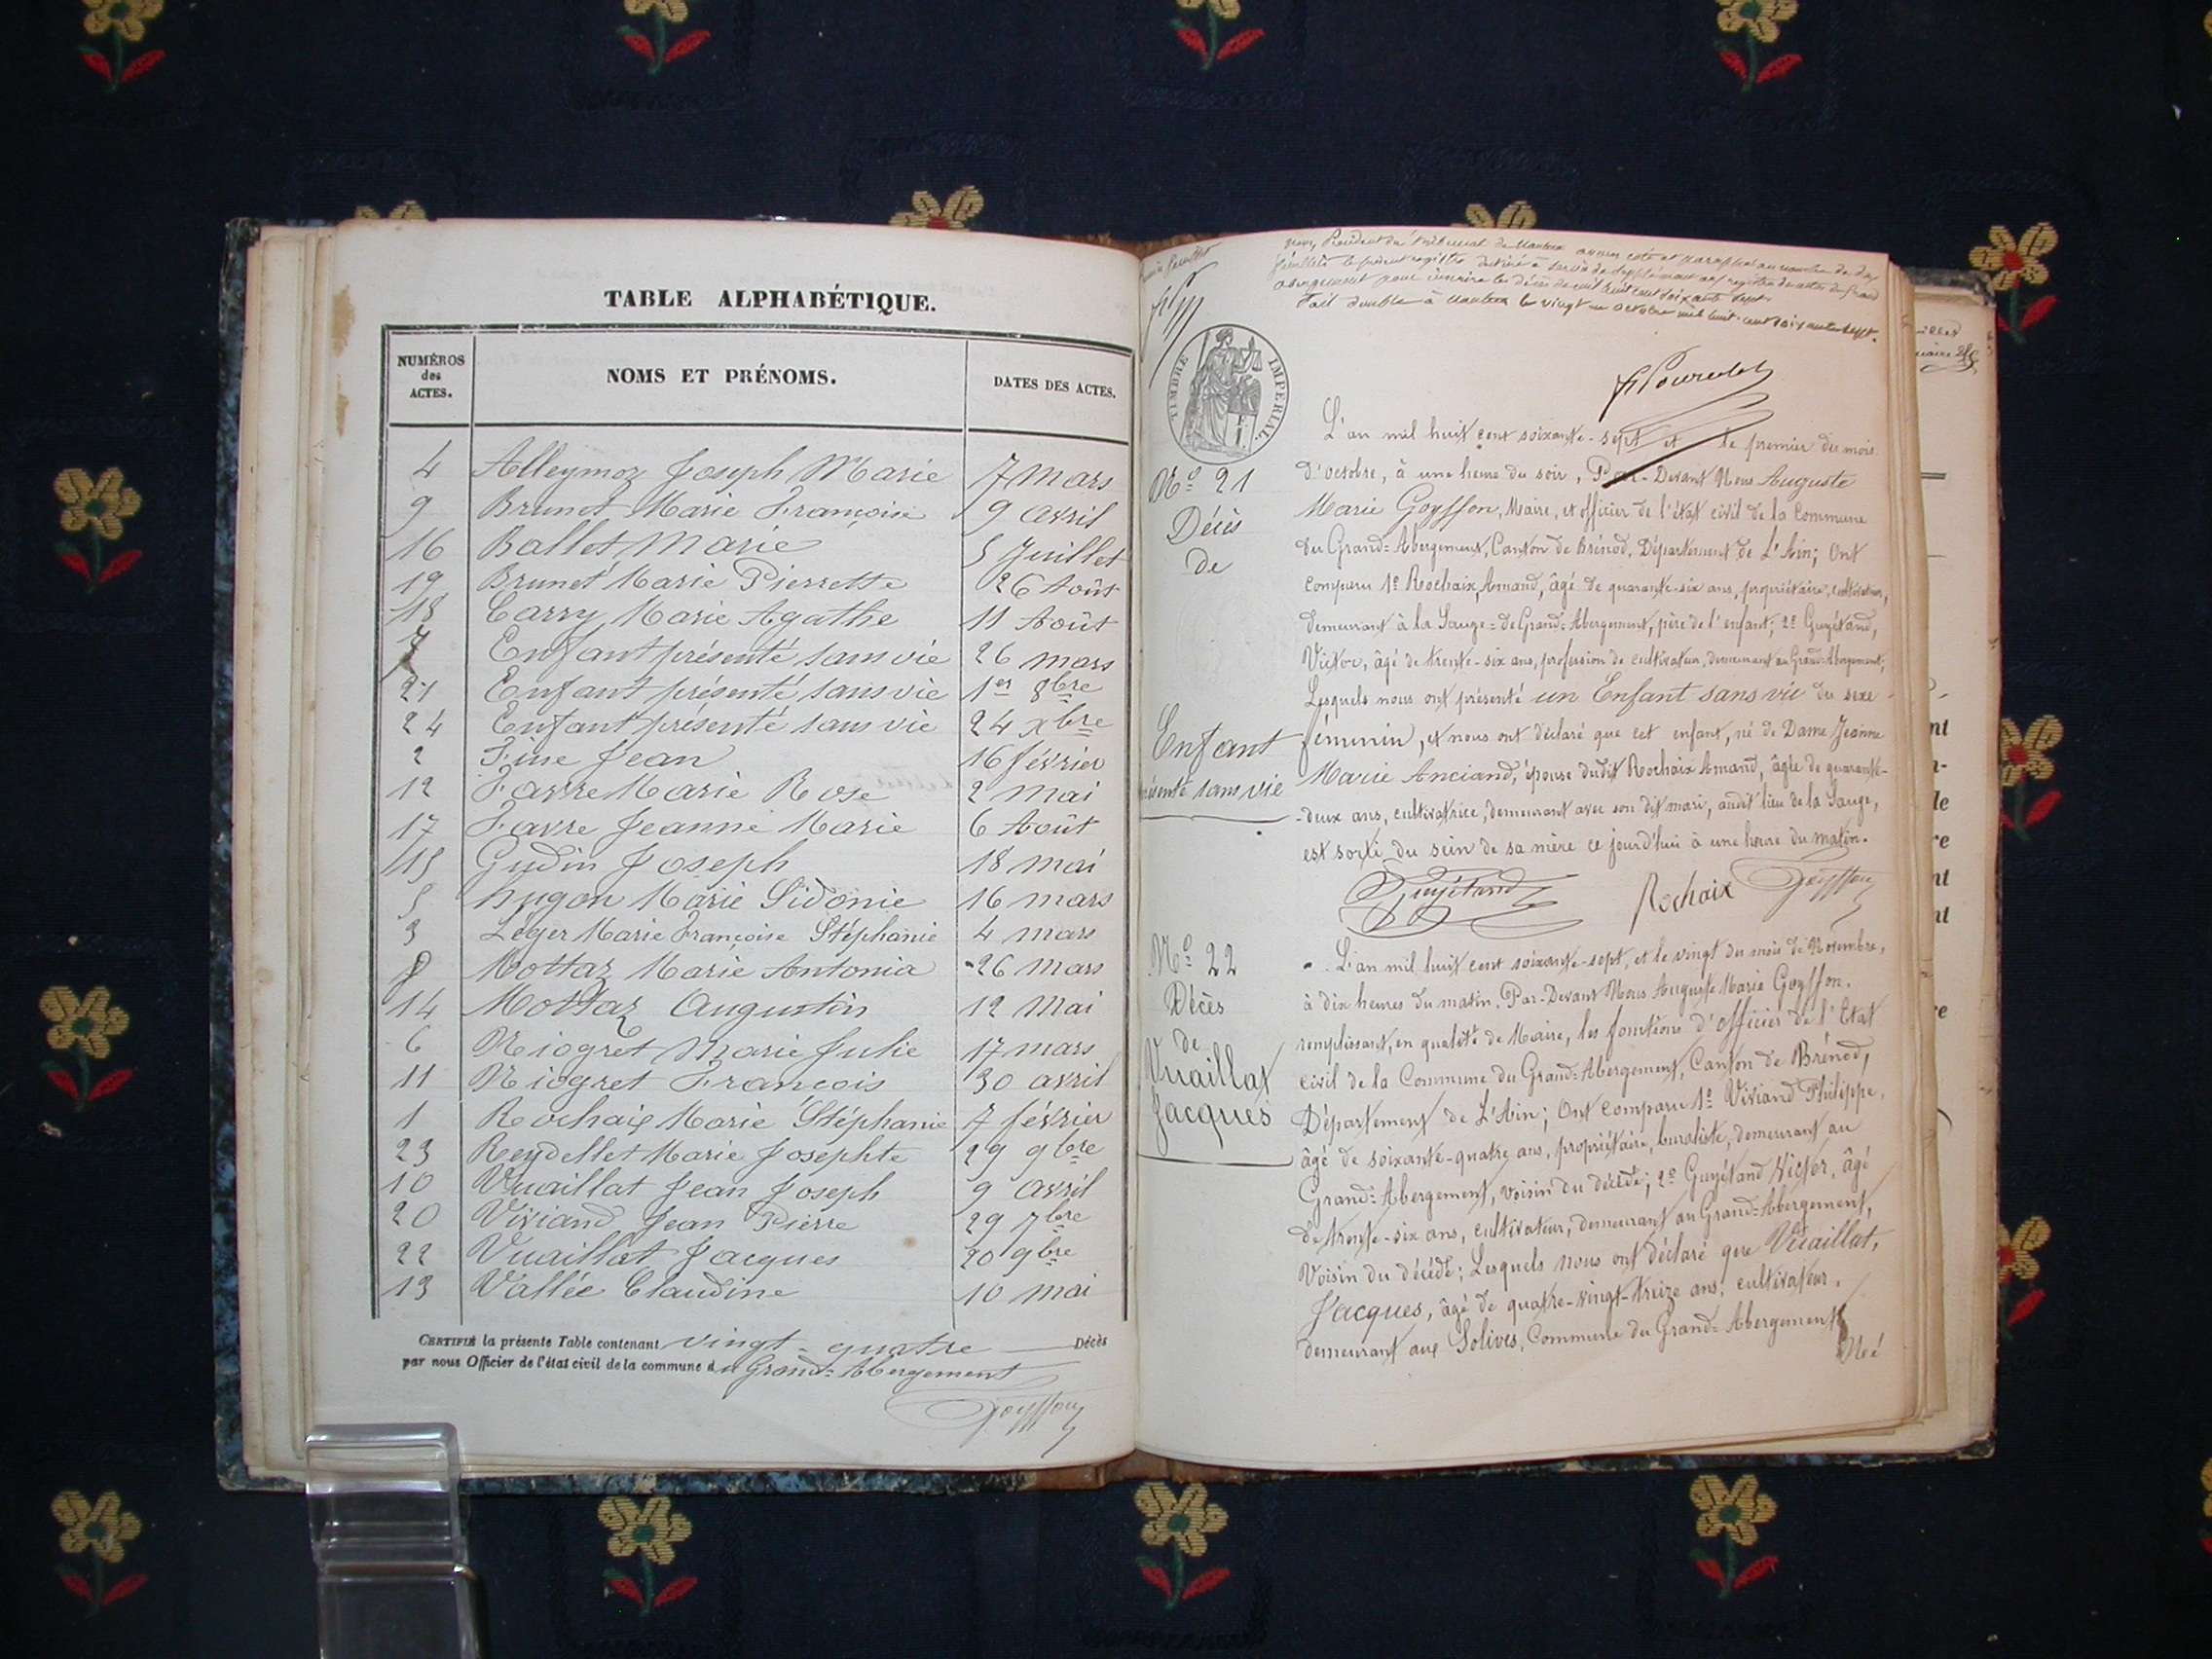 TABLE ALPHABÉTIQUE.
NUMÉROS des ACTES. NOMS ET PRÉNOMS. DATES DES ACTES.
4 Alleymoz Joseph Marie 7 Mars
9 Brunet Marie Françoise 9 avril
16 Ballet Marie 5 Juillet
19 Brunet Marie Pierrette 26 Août
18 Carry Marie Agathe 11 Août
7 Enfant présenté sans vie 26 mars
21 Enfant présenté sans vie 1er 8bre
24 Enfant présenté sans vie 24 xbre
2 Fine Jean 16 février
12 Favre Marie Rose 2 mai
17 Favre Jeanne Marie 6 Août
15 Gudin Joseph 18 mai
5 hugon Marie Sidonie 16 mars
3 Léger Marie Françoise Stéphanie 4 mars
8 Mottaz Marie Antonia 26 Mars
14 Mottaz Augustin 12 Mai
6 Niogret Marie Julie 17 mars
11 Niogret François 30 avril
1 Rochaix Marie Stéphanie 7 février
23 Reydellet Marie Josephte 29 9bre
10 Vuaillat Jean Joseph 9 avril
20 Viviand Jean Pierre 29 7bre
22 Vuaillat Jacques 20 9bre
13 Vallée Claudine 10 mai
CERTIFIÉ la présente Table contenant vingt-quatre Décès
par nous Officier de l'état civil de la commune du Grand-Abergement
Goyffon
Nous, Président du tribunal de Nantua avons coté et paraphé au nombre de
feuillets le présent registre destiné à servir de supplément au registre des actes du Grand
abergement pour inscrire les décès de mil huit cent soixante sept.
Fait double à Nantua le vingt un octobre mil huit-cent soixante sept.
TIMBRE IMPÉRIAL.
N° 21
Décès
de
Enfant
présenté sans vie
L'an mil huit cent soixante-sept et le premier du mois
d'octobre, à une heure du soir, Par-Devant Nous Auguste
Marie Goyffon, Maire, et officier de l'état civil de la Commune
du Grand-Abergement, Canton de Brénod, Département de L'Ain; Ont
comparu 1° Rochaix, Amand, âgé de quarante-six ans, propriétaire, cultivateur,
demeurant à la Sauge-de Grand-Abergement, père de l'enfant; 2° Guyétand,
Victor, âgé de trente-six ans, profession de cultivateur, demeurant au Grand-Abergement;
Lesquels nous ont présenté un Enfant sans vie du sexe
féminin, et nous ont déclaré que cet enfant, né de Dame Jeanne
Marie Anciand, épouse dudit Rochaix Amand, âgée de quarante-
-deux ans, cultivatrice, demeurant avec son dit mari, audit lieu de la Sauge,
est sorti du sein de sa mère ce jourd'hui à une heure du matin.
Guyétand Rochaix Goyffon
N° 22
Décès
de
Vuaillat
Jacques
L'an mil huit cent soixante-sept, et le vingt du mois de Novembre,
à dix heures du matin, Par-Devant Nous Auguste Marie Goyffon,
remplissant, en qualité de Maire, les fonctions d'officier de l'Etat
civil de la Commune du Grand-Abergement, Canton de Brénod,
Département de L'Ain; Ont comparu 1° Viviand Philippe,
âgé de soixante-quatre ans, propriétaire, buraliste, demeurant au
Grand-Abergement, voisin du décédé; 2° Guyétand Victor, âgé
de trente-six ans, cultivateur, demeurant au Grand-Abergement,
Voisin du décédé; Lesquels nous ont déclaré que Vuaillat,
Jacques, âgé de quatre-vingt-treize ans, cultivateur,
demeurant aux Solives, Commune du Grand-Abergement
Né